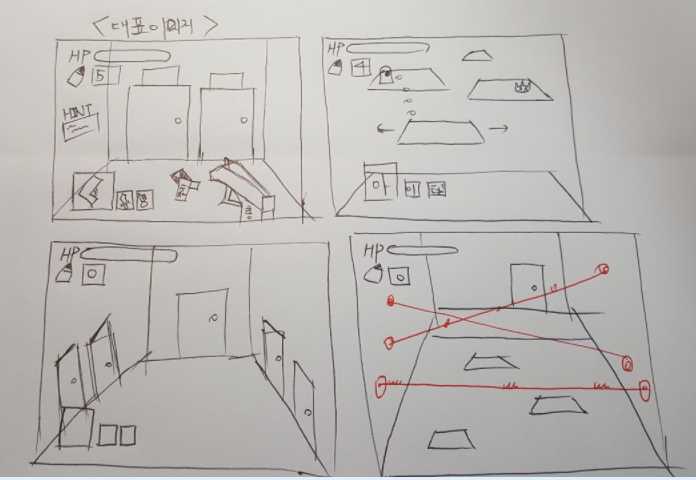 <대표이미지>
HP
5
HINT
HP
4
HP
0
HP
0